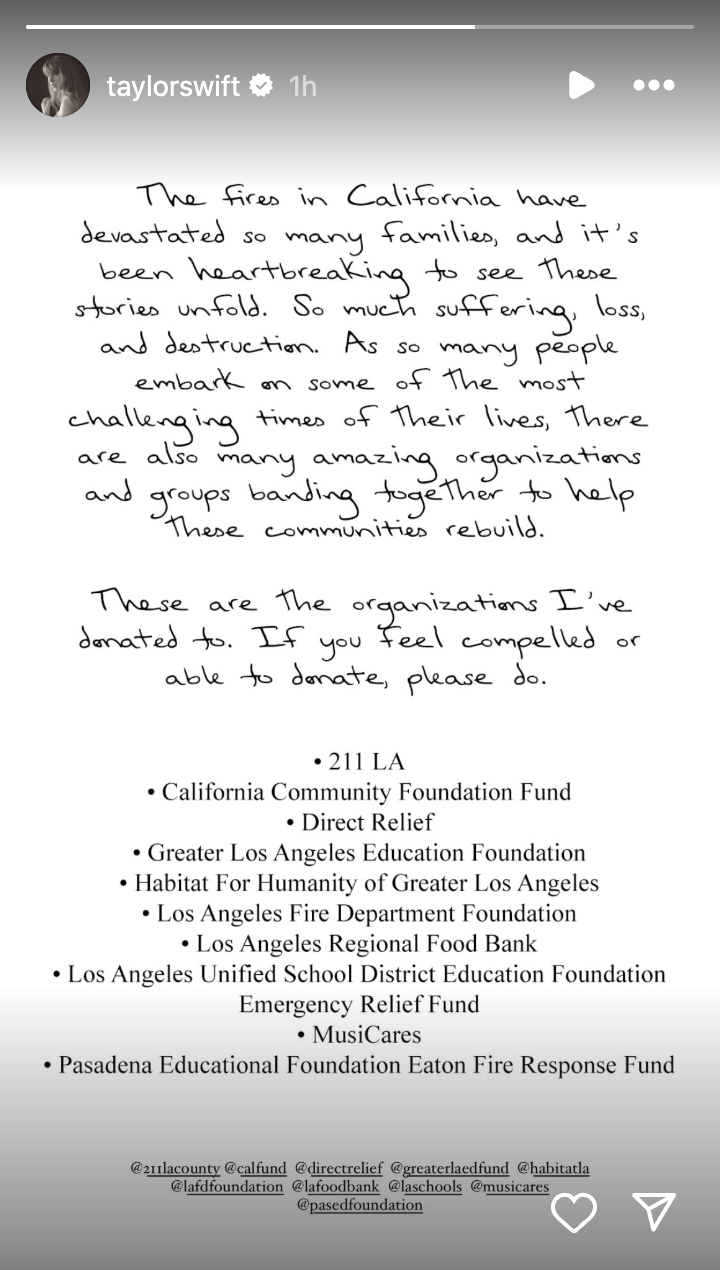 taylorswift 1h
The fires in California have
devastated so many families, and it's
been heartbreaking to see these
stories unfold. So much suffering, loss,
and destruction. As so many people
embark on some of the most
challenging times of their lives, there
are also many amazing organizations
and groups banding together to help
these communities rebuild.
These are the organizations I've
donated to. If you feel compelled or
able to donate, please do.
• 211 LA
• California Community Foundation Fund
• Direct Relief
• Greater Los Angeles Education Foundation
• Habitat For Humanity of Greater Los Angeles
• Los Angeles Fire Department Foundation
• Los Angeles Regional Food Bank
• Los Angeles Unified School District Education Foundation
Emergency Relief Fund
• MusiCares
• Pasadena Educational Foundation Eaton Fire Response Fund
@211lacounty @calfund @directrelief @greaterlaedfund @habitatla
@lafdfoundation @lafoodbank @laschools @musicares
@pasedfoundation